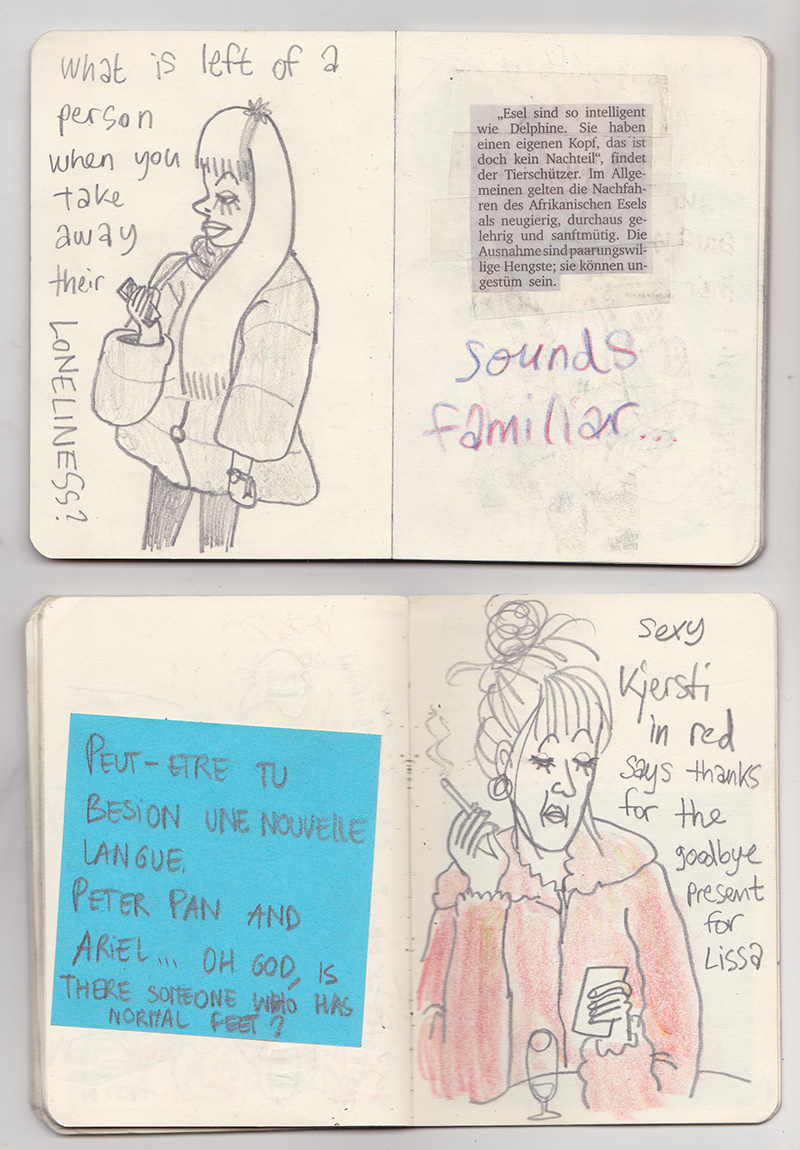 what is left of a
person
when you
take
away
their
LONELINESS?
„Esel sind so intelligent
wie Delphine. Sie haben
einen eigenen Kopf, das ist
doch kein Nachteil“, findet
der Tierschützer. Im Allge-
meinen gelten die Nachfah-
ren des Afrikanischen Esels
als neugierig, durchaus ge-
lehrig und sanftmütig. Die
Ausnahme sind paarungswil-
lige Hengste; sie können un-
gestüm sein.
sounds
familiar...
PEUT-ETRE TU
BESION UNE NOUVELLE
LANGUE.
PETER PAN AND
ARIEL... OH GOD, IS
THERE SOMEONE WHO HAS
NORMAL FEET?
sexy
Kjersti
in red
says thanks
for the
goodbye
present
for
Lissa